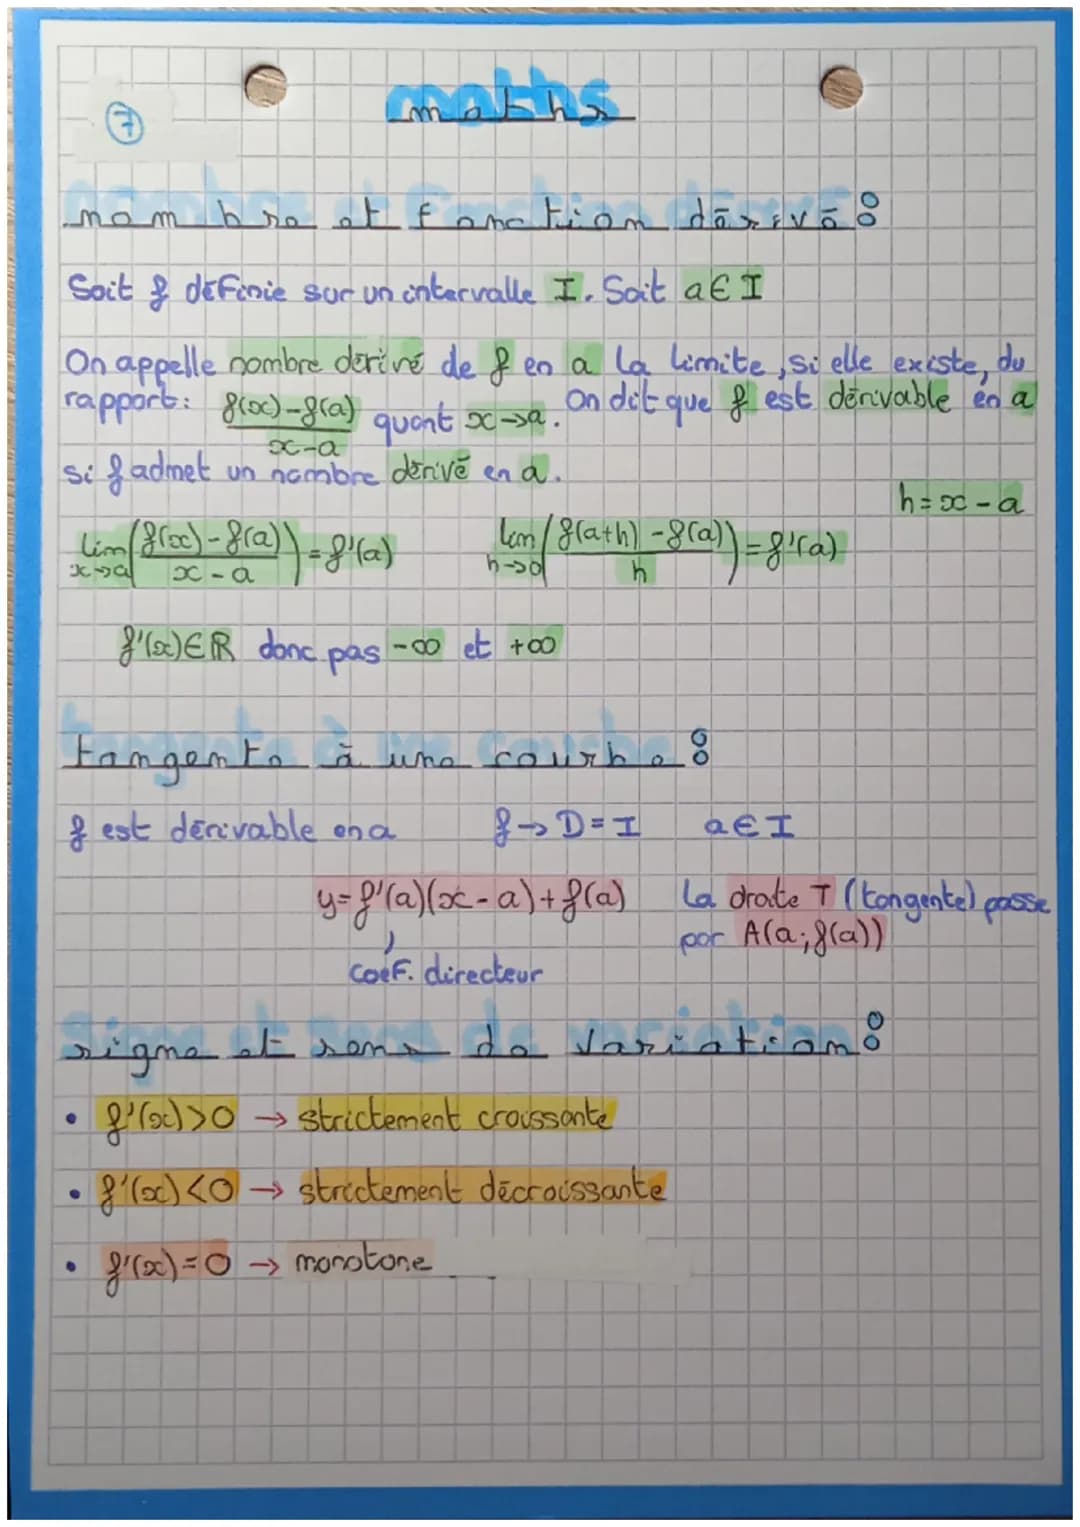 7
maths
nombre et fonction dérivé :
Soit f définie sur un intervalle I. Soit a∈I
On appelle nombre dérivé de f en a la limite, si elle existe, du
rapport : (f(x)-f(a))/(x-a) quant x→a. On dit que f est dérivable en a
si f admet un nombre dérivé en a.
h = x - a
lim x→a ((f(x)-f(a))/(x-a)) = f'(a) lim h→0 ((f(a+h)-f(a))/h) = f'(a)
f'(x)∈ℝ donc pas -∞ et +∞
tangente à une courbe :
f est dérivable en a f→D=I a∈I
y=f'(a)(x-a)+f(a) la droite T (tangente) passe
par A(a;f(a))
coef. directeur
signe et sens de variation :
• f'(x)>0 → strictement croissante
• f'(x)<0 → strictement décroissante
• f'(x)=0 → monotone